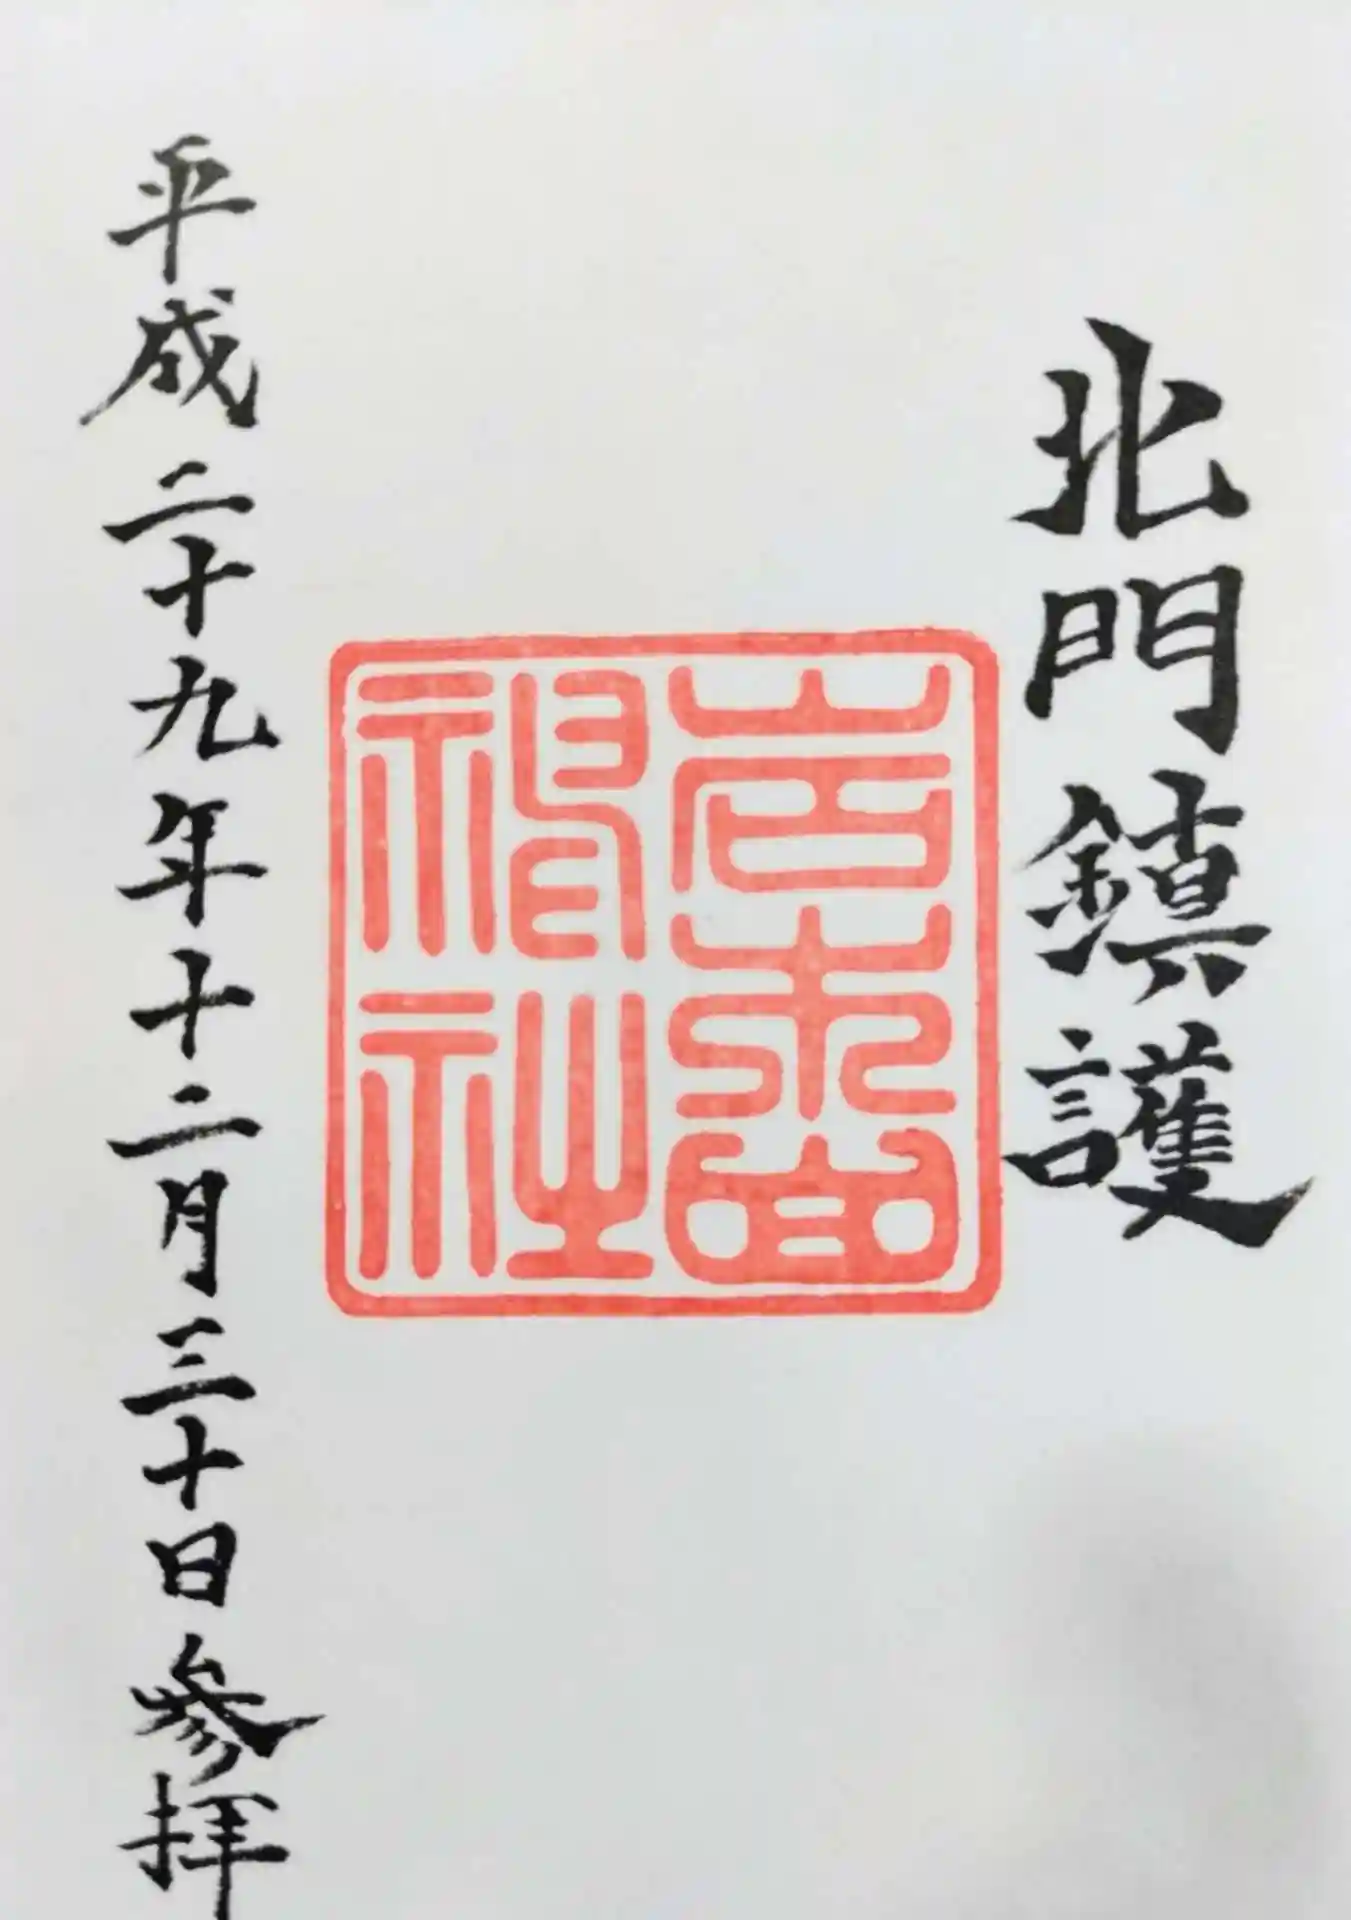 北門鎮護
岩木山
神社
平成二十九年十二月三十日参拝